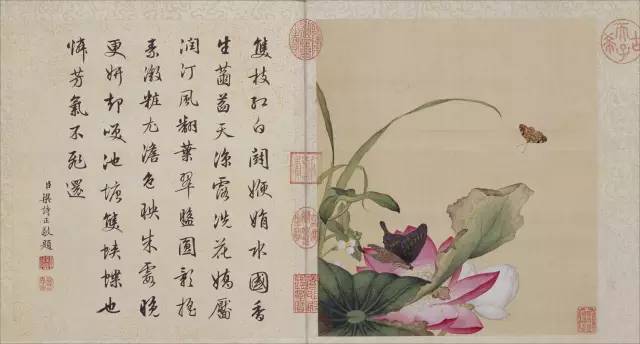 雙枝紅白鬭㛹娟水國香
生菡萏天涼露洗花嬌靨
潤汀風翻葉翠盤圓影搖
素瀲粧尤澹色映朱霞晚
更妍却咲池塘雙蛺蝶也
憐芳氣不飛還
臣梁詩正敬題
古希天子